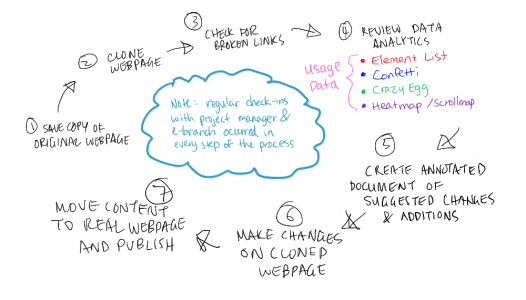 ① SAVE COPY OF
ORIGINAL WEBPAGE
② CLONE
WEBPAGE
③ CHECK FOR
BROKEN LINKS
④ REVIEW DATA
ANALYTICS
Usage
Data
• Element List
• Confetti
• Crazy Egg
• Heatmap/Scrollmap
Note: regular check-ins
with project manager &
e-branch ocurred in
every step of the process
⑤
CREATE ANNOTATED
DOCUMENT OF
SUGGESTED CHANGES
& ADDITIONS
⑥
MAKE CHANGES
ON CLONED
WEBPAGE
⑦
MOVE CONTENT
TO REAL WEBPAGE
AND PUBLISH